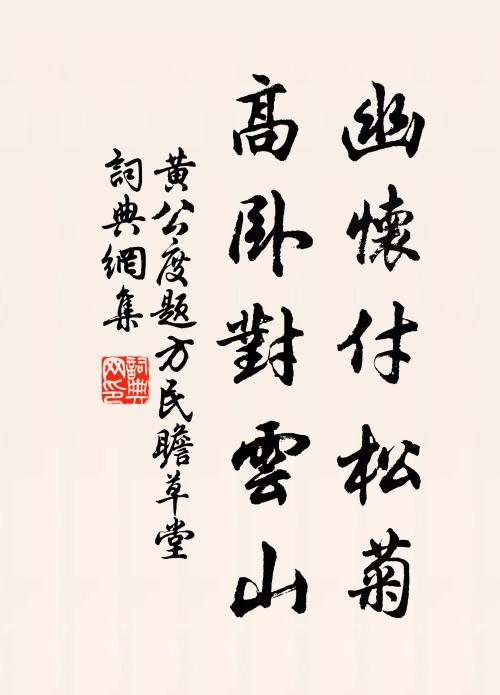 幽懷付松菊
高卧對雲山
黃公度題方民瞻草堂
詞典網集
詞典网印